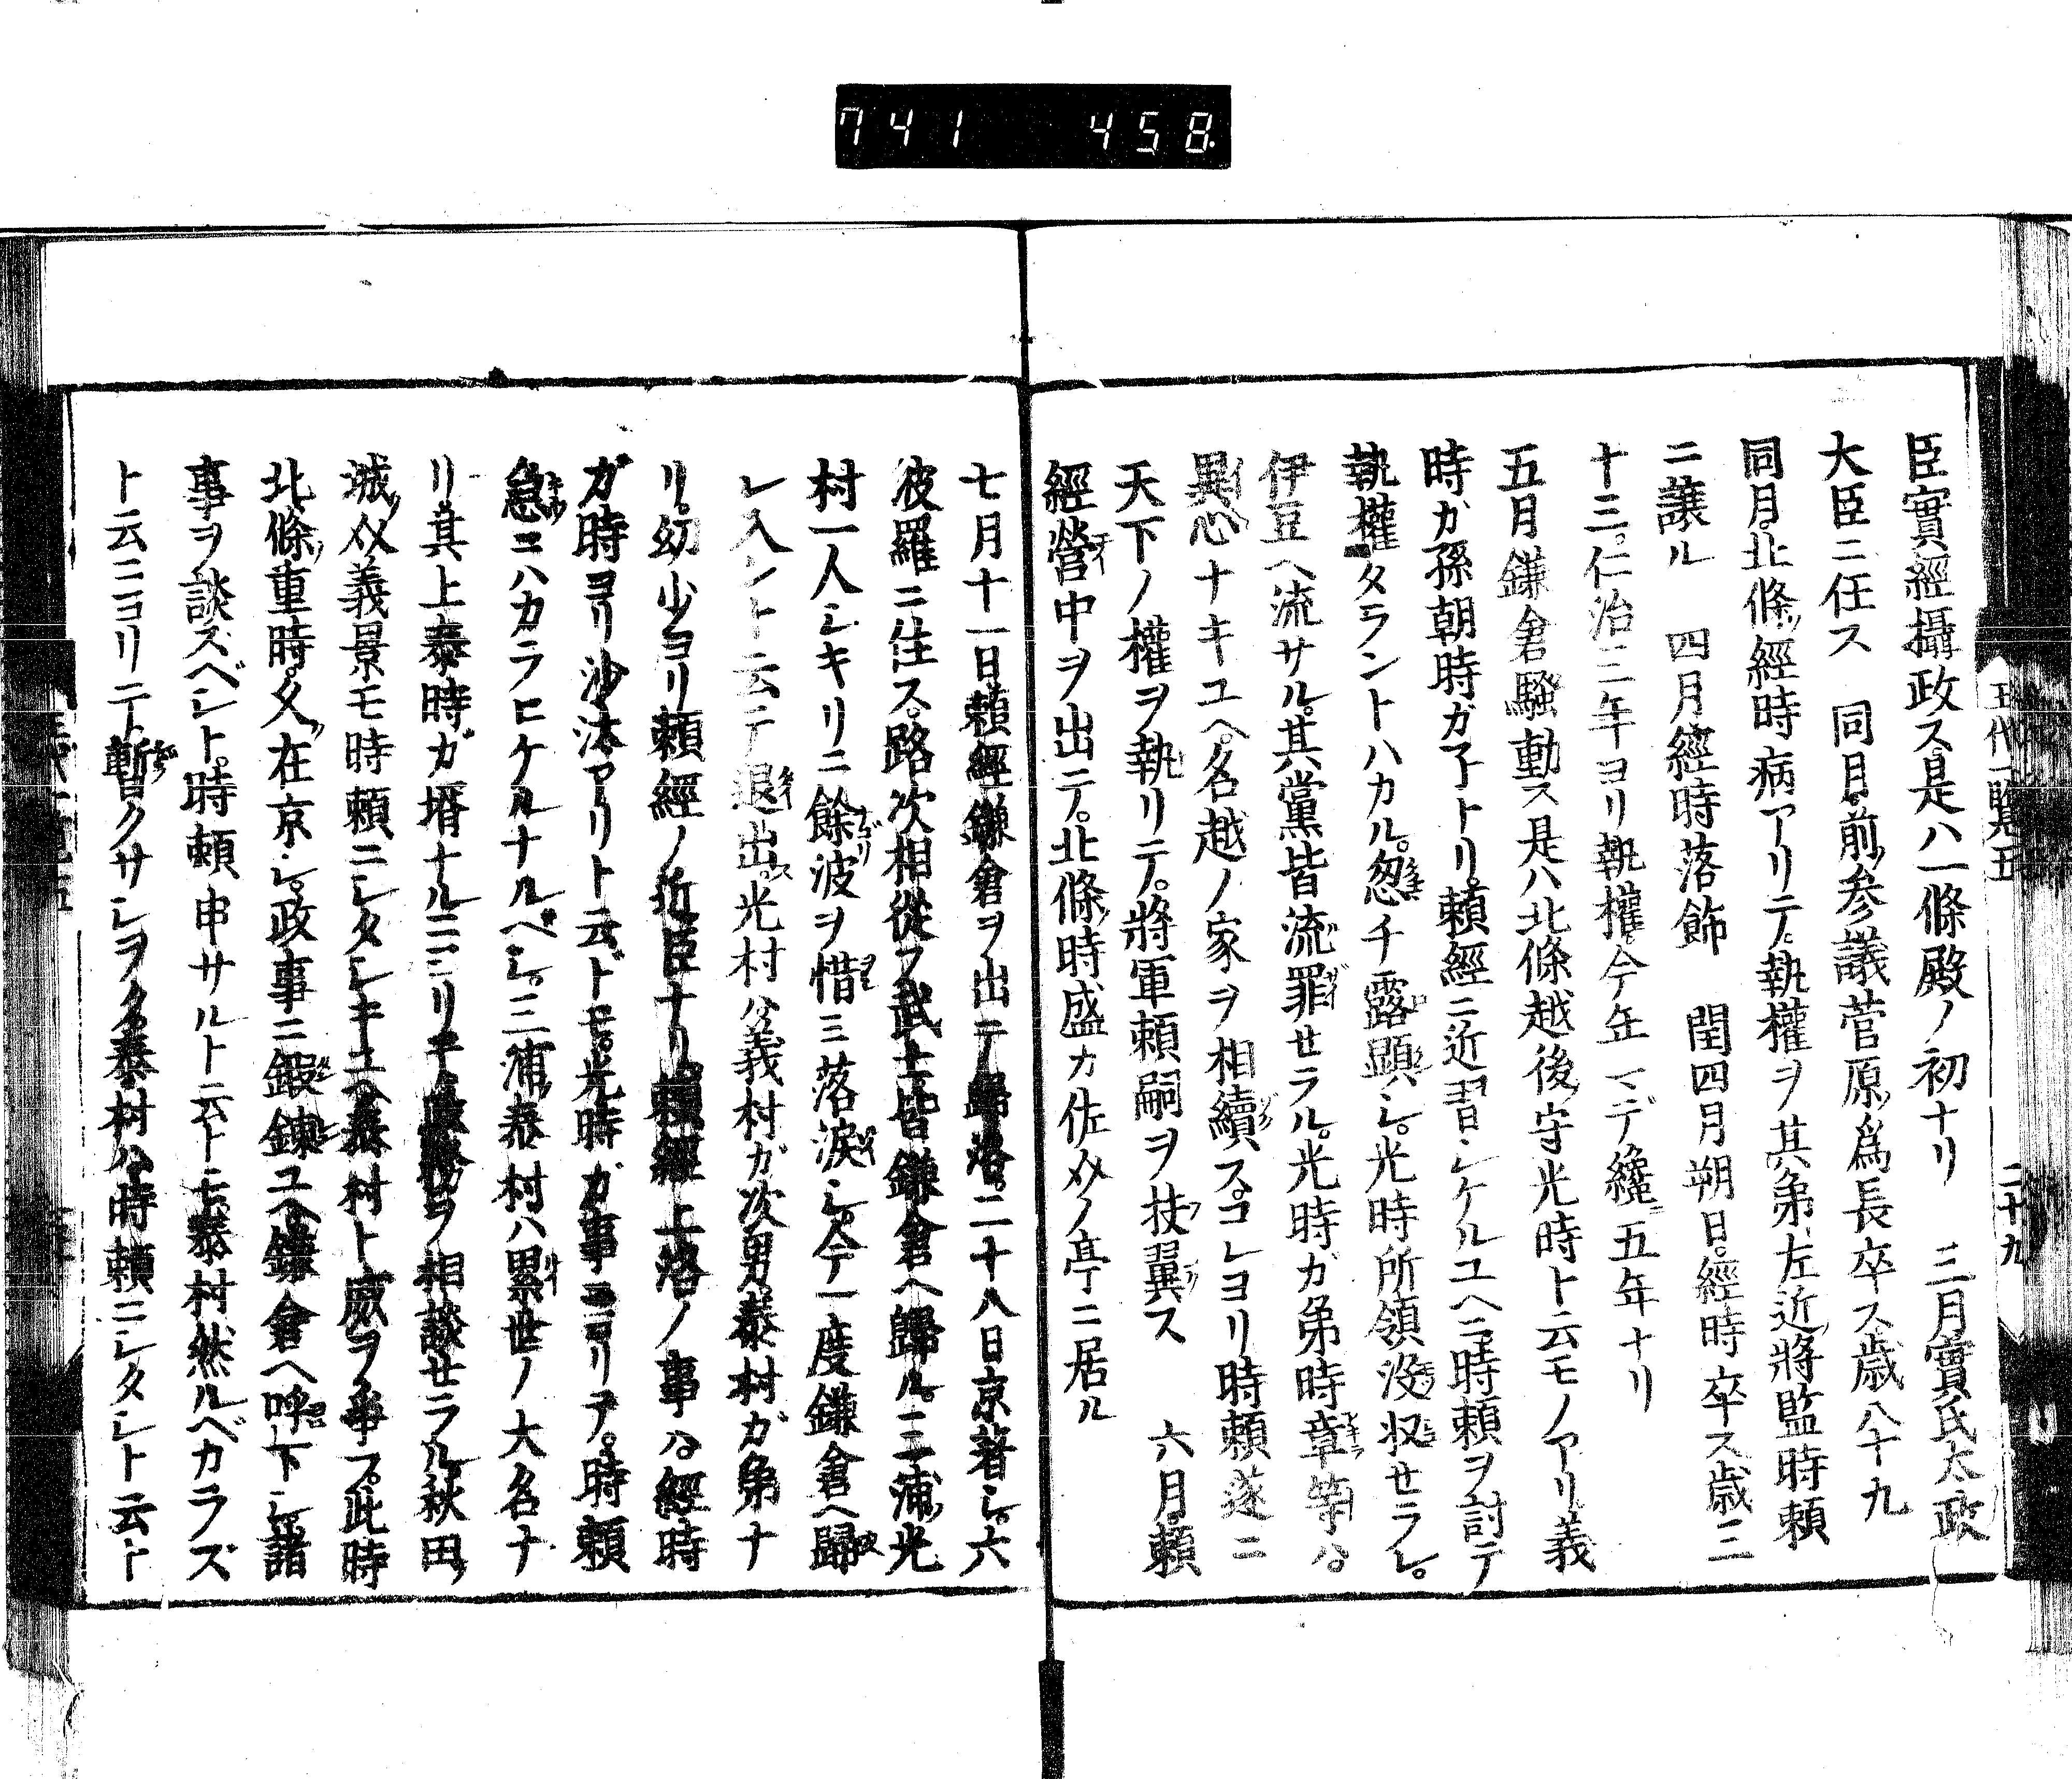 741 458
臣實經攝政ス。是ハ一條殿ノ初ナリ 三月實氏太政
大臣ニ任ス 同月前ノ参議菅原ノ爲長卒ス歳八十九
同月北條ノ經時病アリテ。執權ヲ其弟左近ノ將監時頼
ニ譲ル 四月經時落飾 閏四月朔日。經時卒ス歳三
十三。仁治三年ヨリ執權。今年マデ纔ニ五年ナリ
五月鎌倉騷動ス是ハ北條越後ノ守光時ト云モノアリ義
時ガ孫朝時ガ子ナリ。頼經ニ近習シケルユヘニ時頼ヲ討テ
執權タラントハカル。忽チ露顯シ。光時所領没収セラレ。
伊豆ヘ流サル。其黨皆流罪セラル。光時ガ弟時章等ハ
異心ナキユヘ。名越ノ家ヲ相續ス。コレヨリ時頼遂ニ
天下ノ權ヲ執リテ。將軍頼嗣ヲ扶翼ス 六月。頼
經營中ヲ出テ。北條ノ時盛カ佐介ノ亭ニ居ル
七月十一日。頼經鎌倉ヲ出テ歸洛。二十八日京著シ。六
彼羅ニ住ス。路次相從フ武士皆鎌倉ヘ歸ル。三浦ノ光
村一人シキリニ餘波ヲ惜ミ落涙シ。今一度鎌倉ヘ歸
レ入ント云テ退出ス。光村ハ義村ガ次男泰村ガ弟ナ
リ。幼少ヨリ頼經ノ近臣ナリ。頼經上洛ノ事ハ。經時
ガ時ヨリ沙汰アリト云ドモ。光時ガ事ニヨリテ。時頼
急ニハカラヒケルナルベシ。三浦ノ泰村ハ累世ノ大名ナ
リ。其上泰時ガ壻ナルニヨリテ政務ヲ相談セラル。秋田ノ
城ノ介義景モ時頼ニシタシキユヘ泰村ト威ヲ爭フ。此時
北條ノ重時。久ク在京シ。政事ニ鍛錬ユヘ鎌倉ヘ呼下シ諸
事ヲ談ズベシト。時頼申サルト云トモ泰村然ルベカラズ
ト云ニヨリテ。暫クサシヲク。泰村ハ時頼ニシタシト云ト
王代一覧五 二十九